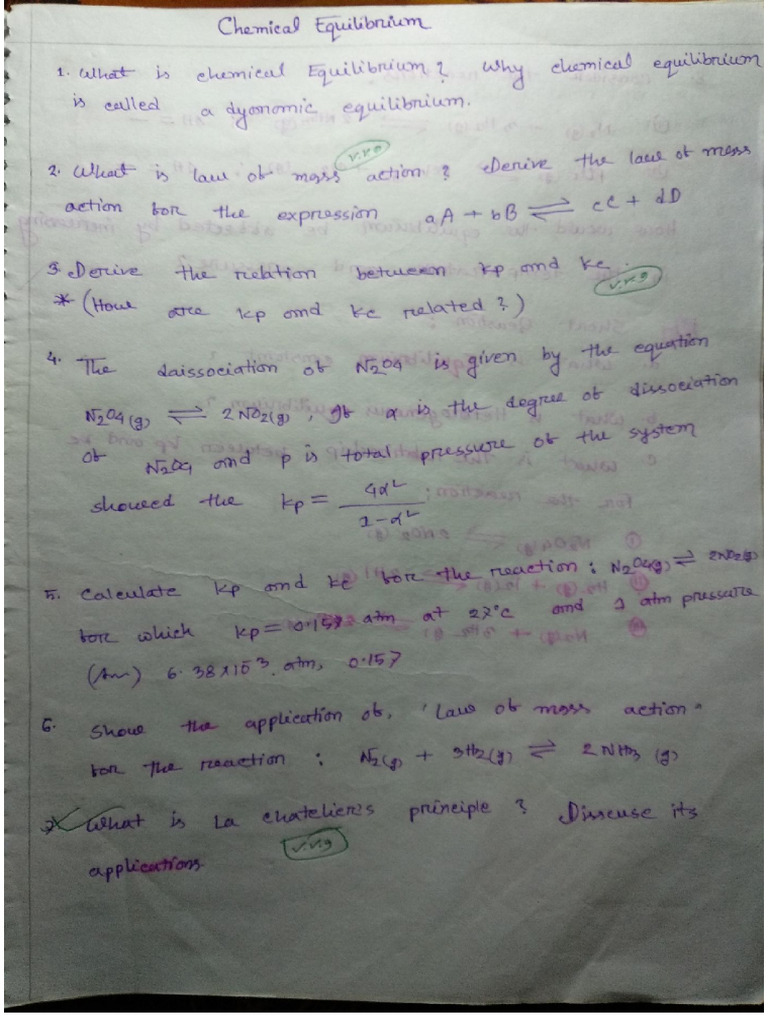 Chemical Equilibrium
1. What is chemical Equilibrium? Why chemical equilibrium
is called a dyonomic equilibrium.
v.v.g
2. What is law of mass action? Derive the law of mass
action for the expression aA + bB ⇌ cC + dD
3. Derive the relation between kp and kc.
v.v.g
* (How are kp and kc related?)
4. The daissociation of N2O4 is given by the equation
N2O4(g) ⇌ 2NO2(g), If α is the degree of dissociation
of N2O4 and p is total pressure of the system
showed the kp = 4α² / 1-α²
5. Calculate kp and kc for the reaction: N2O4(g) ⇌ 2NO2(g)
for which kp = 0.157 atm at 27°C and 1 atm pressure
(Ans) 6.38x10³ atm, 0.157
6. Show the application of, 'Law of mass action"
for the reaction : N2(g) + 3H2(g) ⇌ 2NH3 (g)
7. What is La chatelier's principle? Disscuse its
v.v.g
applications